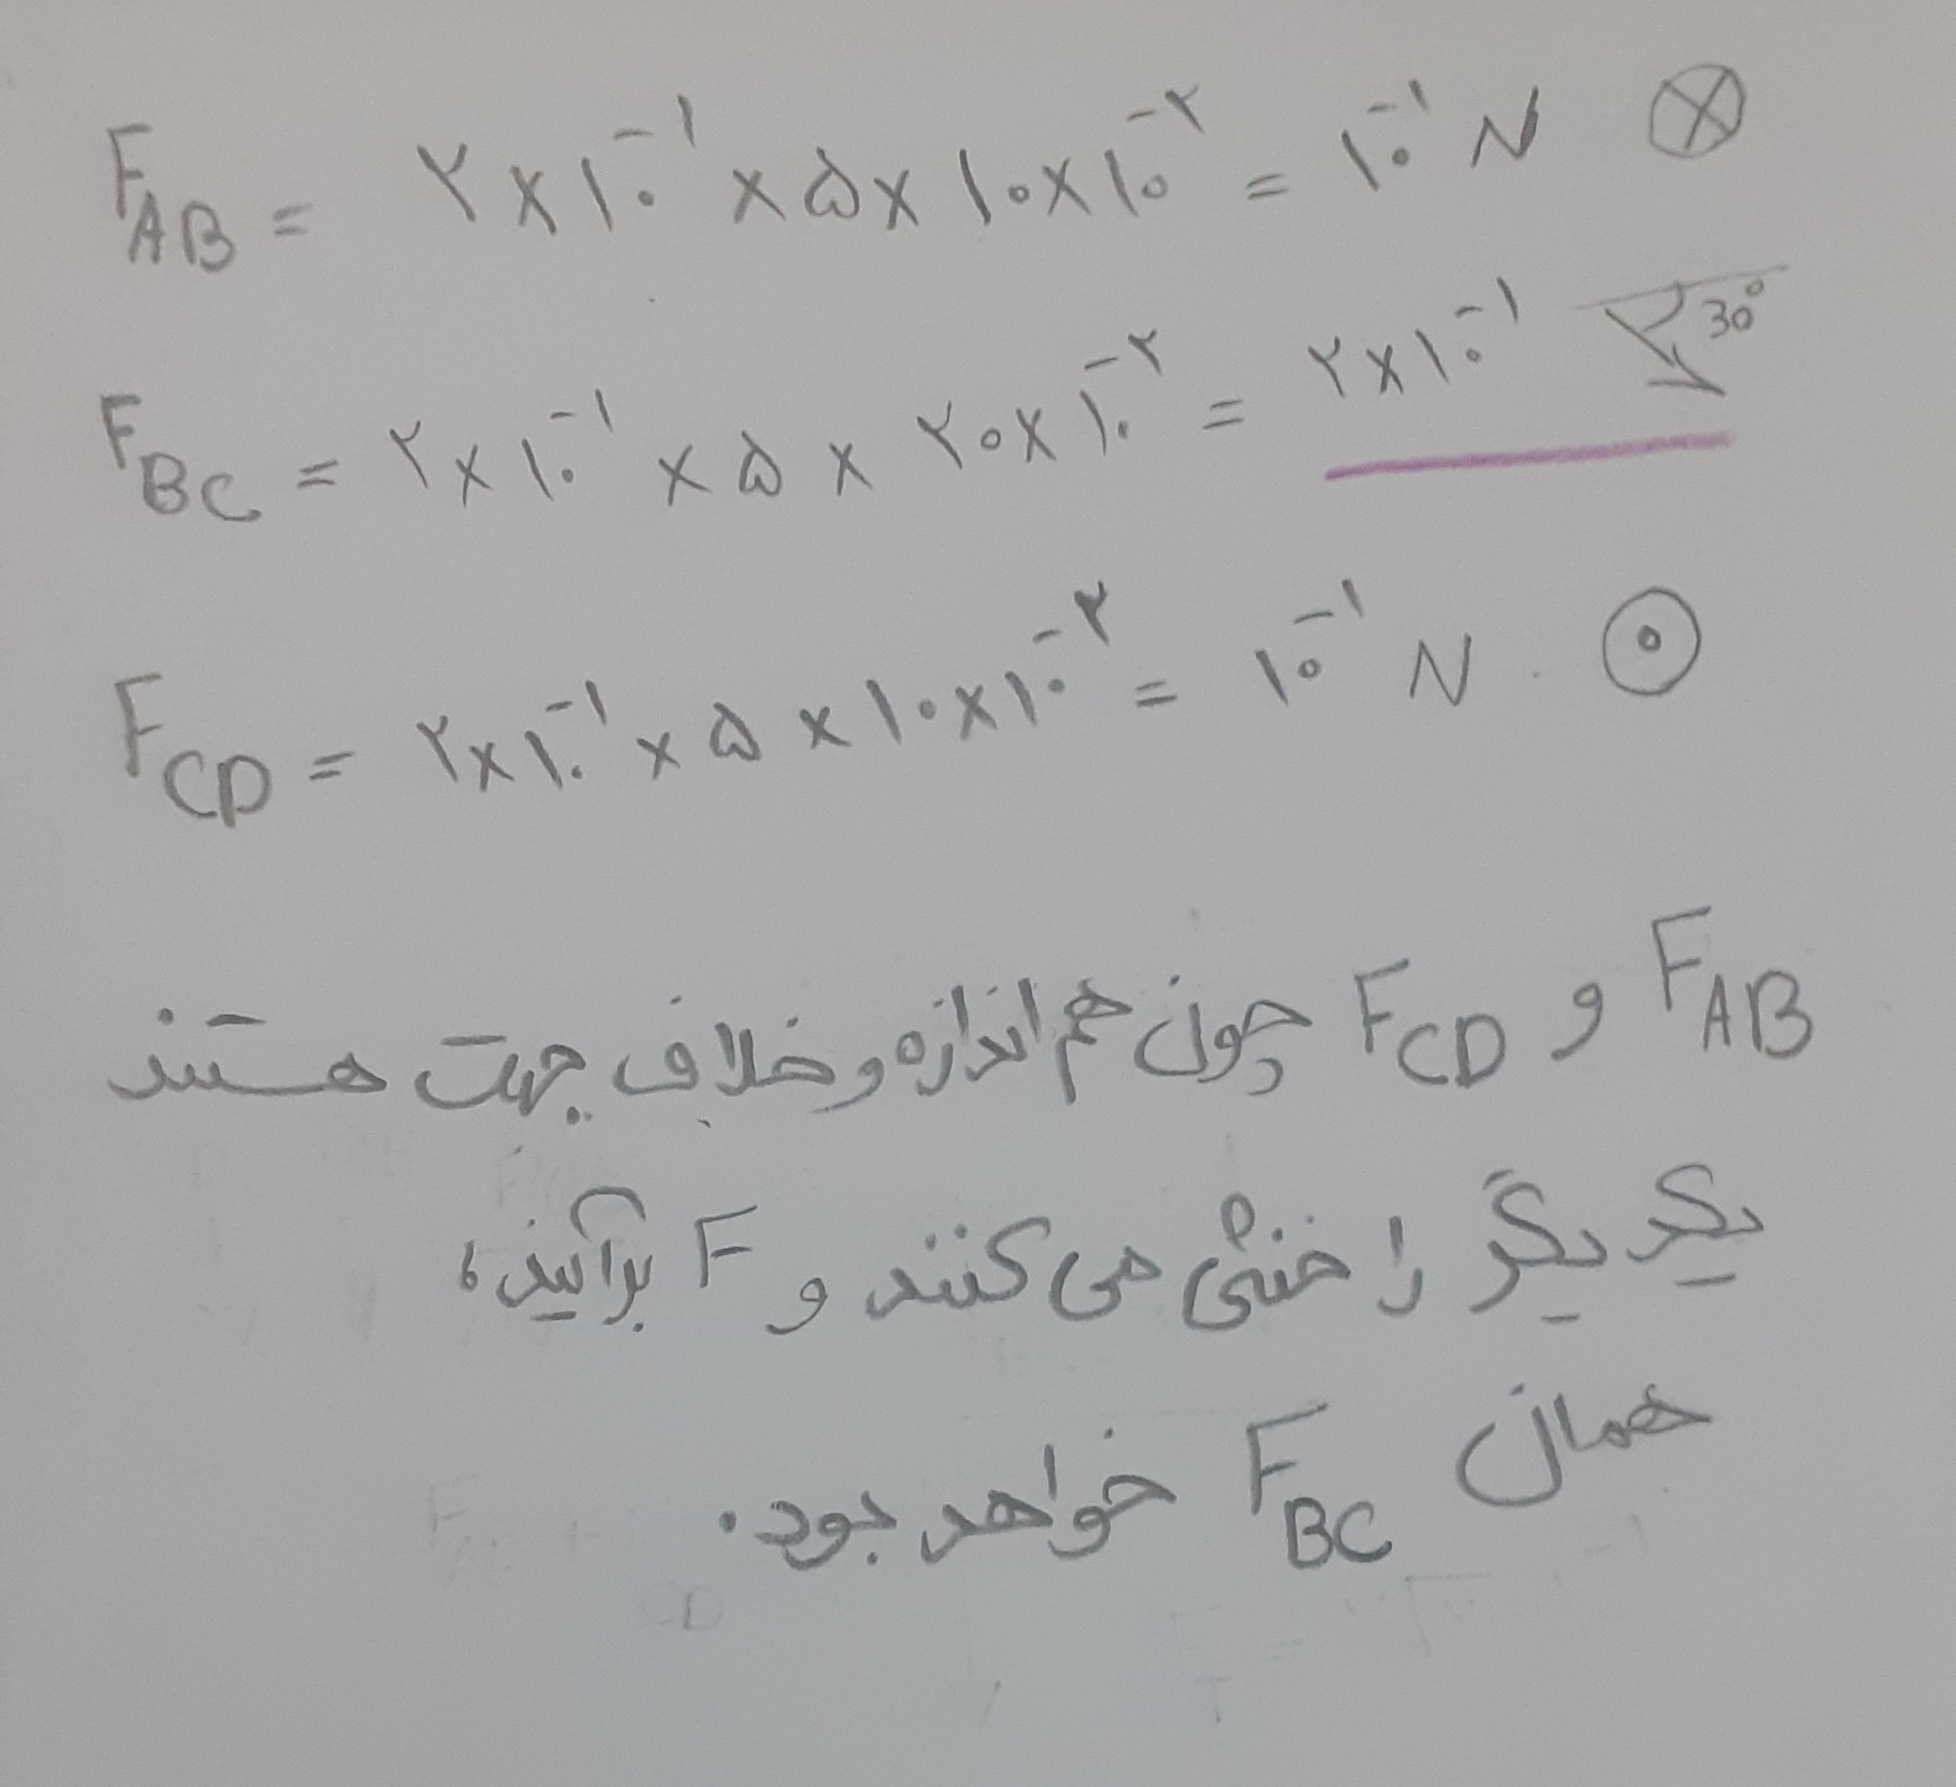 F_AB = ۲×۱۰^-۱ ×۵× ۱۰×۱۰^-۲ = ۱۰^-۱ N ⊗
F_BC = ۲×۱۰^-۱ ×۵× ۲۰×۱۰^-۲ = ۲×۱۰^-۱ 30°
F_CD = ۲×۱۰^-۱ ×۵ ×۱۰×۱۰^-۲ = ۱۰^-۱ N ⊙
F_AB و F_CD چون هم اندازه و خلاف جهت هستند
یکدیگر را خنثی می کنند و F برآیند،
همان F_BC خواهد بود.